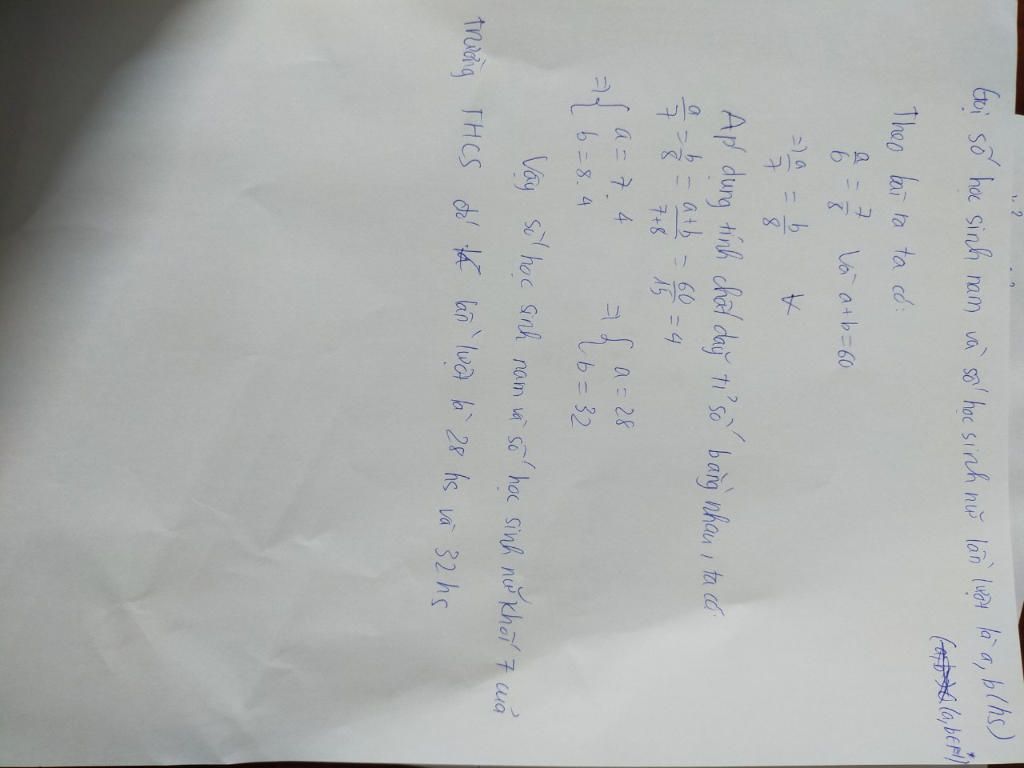 Gọi số học sinh nam và số học sinh nữ lần lượt là a, b (hs)
(a, b ∈ N*)
Theo bài ra ta có:
a/b = 7/8 và a+b=60
=> a/7 = b/8
Áp dụng tính chất dãy tỉ số bằng nhau, ta có
a/7 = b/8 = a+b/7+8 = 60/15 = 4
=> { a = 7.4 => { a = 28
{ b = 8.4 { b = 32
Vậy số học sinh nam và số học sinh nữ khối 7 của
trường THCS đó lần lượt là 28 hs và 32 hs